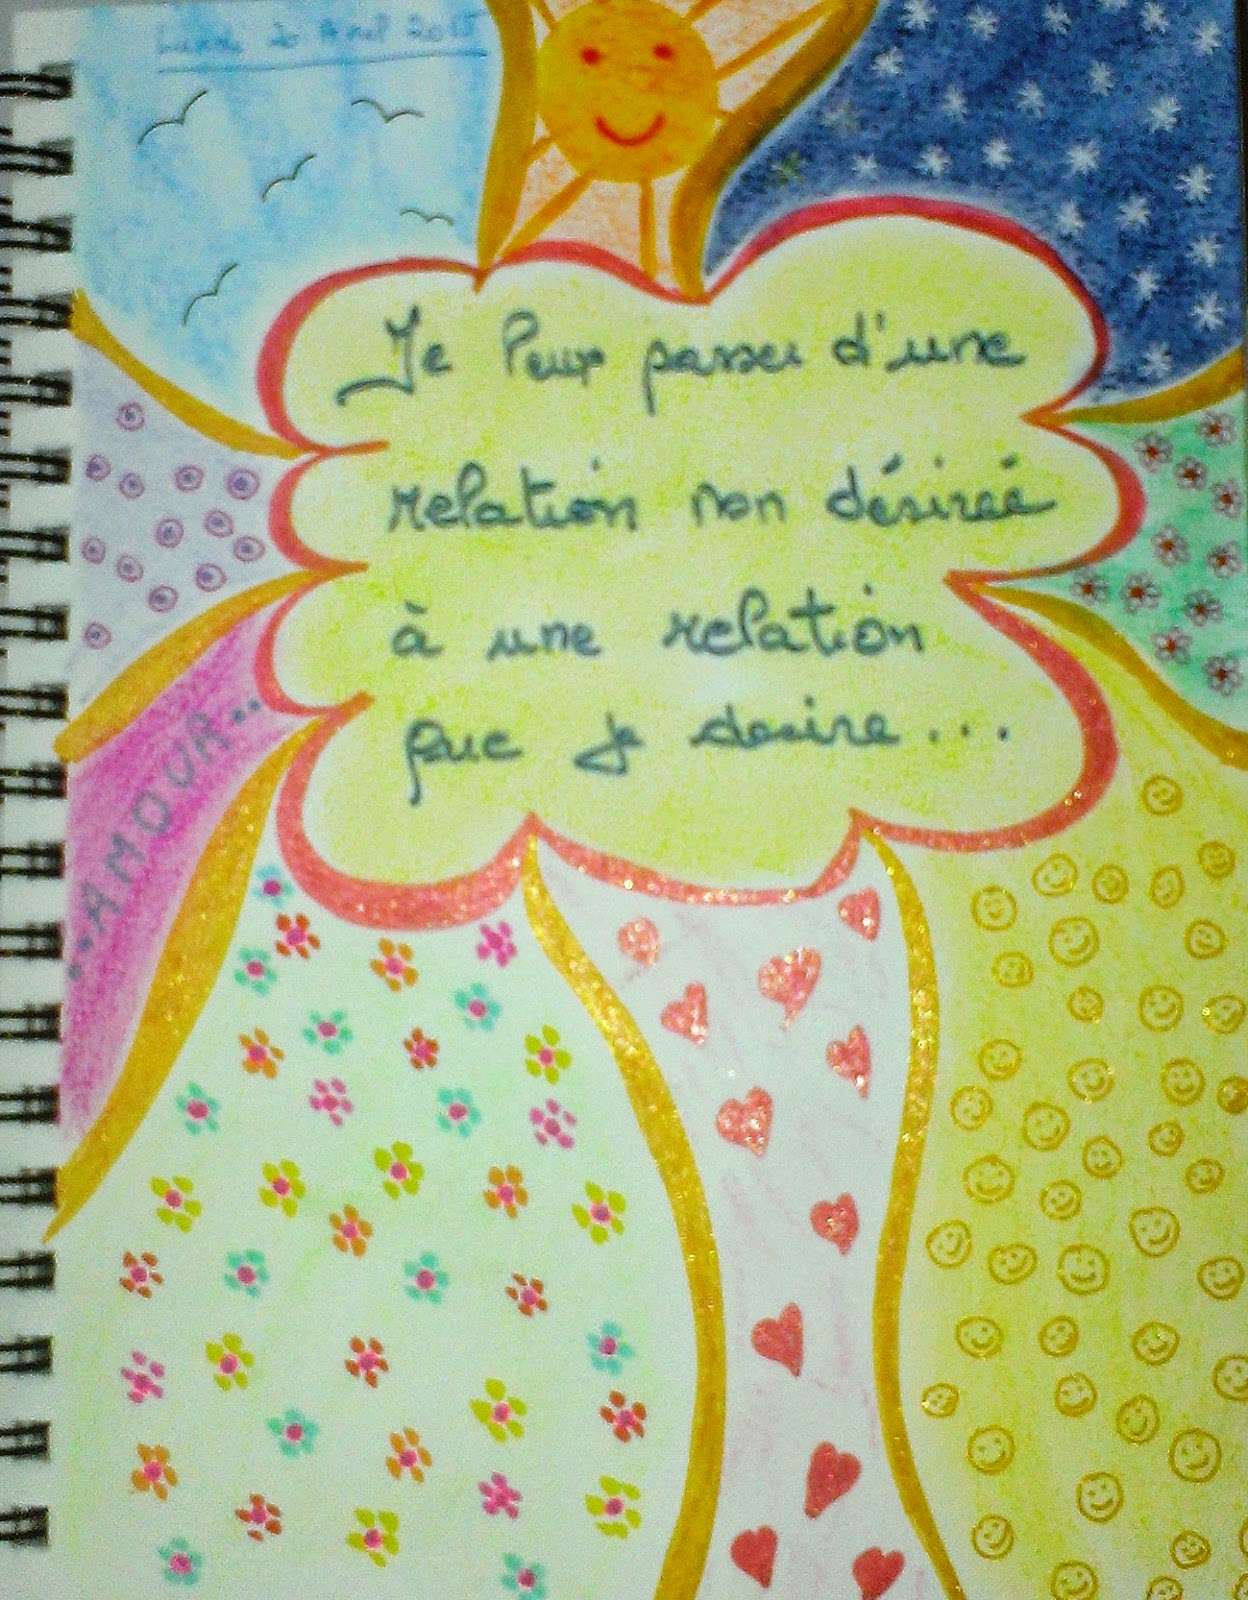 Lundi 20 Avril 2015
Je Peux passer d'une
relation non désirée
à une relation
que je desire...
..AMOUR..